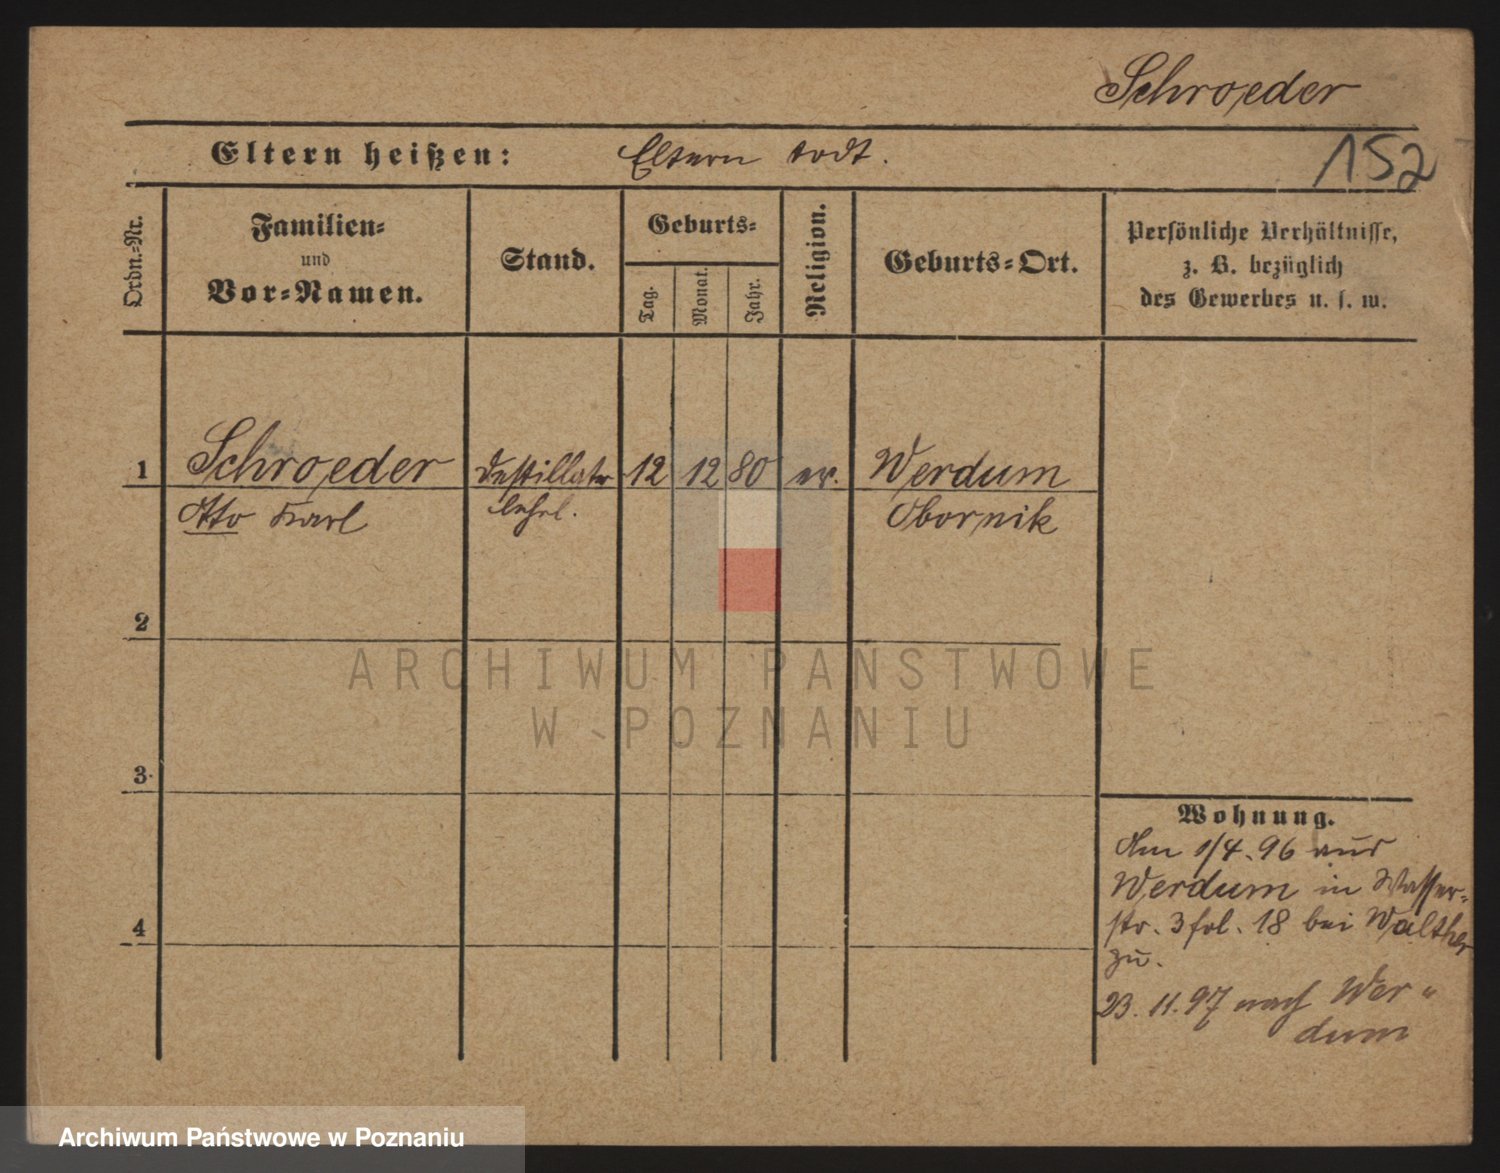 Schroeder
Eltern heißen: Eltern todt.
152
Ordn.-Nr.
Familien-
und
Vor-Namen.
Stand.
Geburts-
Tag.
Monat.
Jahr.
Religion.
Geburts-Ort.
Persönliche Verhältnisse,
z. B. bezüglich
des Gewerbes u. s. w.
1 Schroeder Destillatr 12 12 80 ev. Werdum
Otto Karl lehrl. Obornik
2
ARCHIWUM PAŃSTWOWE
W POZNANIU
3
Wohnung.
Am 1/4. 96 aus
Werdum in Wasser-
str. 3 fol. 18 bei Walther
zu.
4
23. 11. 97 nach Wer-
dum
Archiwum Państwowe w Poznaniu